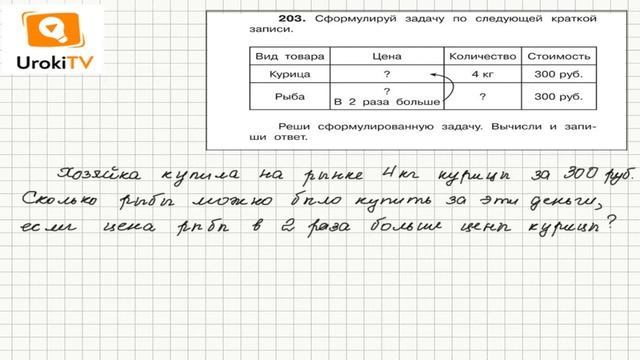 203. Сформулируй задачу по следующей краткой
записи.
Вид товара Цена Количество Стоимость
Курица ? 4 кг 300 руб.
Рыба ? В 2 раза больше ? 300 руб.
Реши сформулированную задачу. Вычисли и запи-
ши ответ.
UrokiTV
Хозяйка купила на рынке 4 кг курицы за 300 руб.
Сколько рыбы можно было купить за эти деньги,
если цена рыбы в 2 раза больше цены курицы?